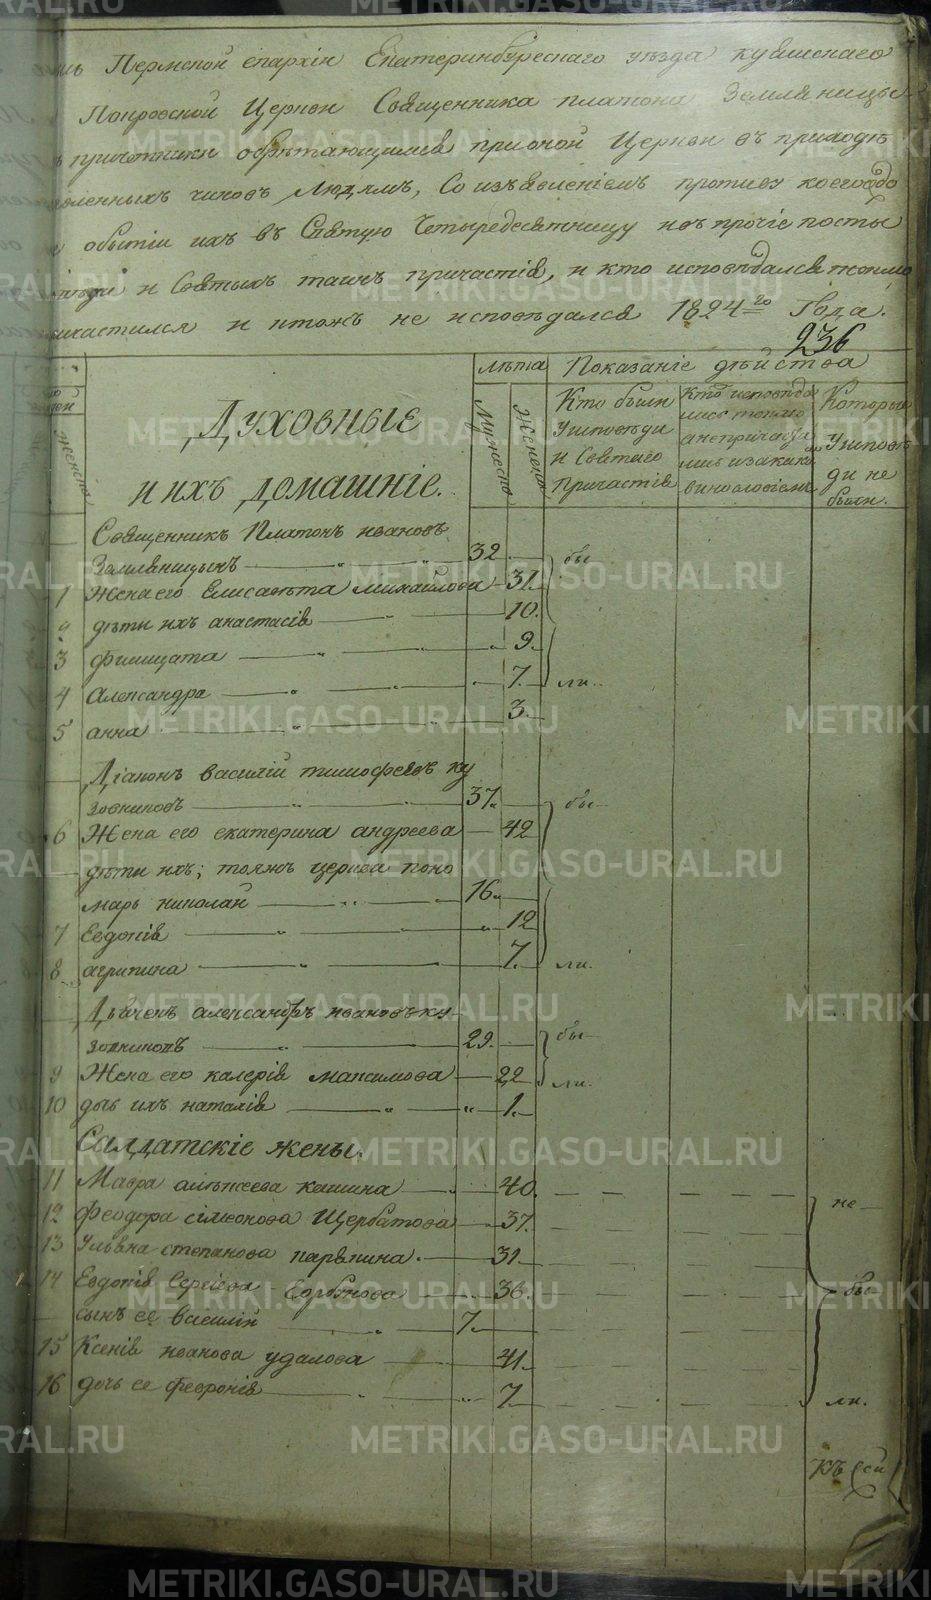 Пермской епархіи Екатеринбургскаго уѣзда кувшискаго
Покровской Церкви Священника платона Земляницы
причетники обрѣтающимся прионой Церкви въ приходѣ
чиновъ Людямъ, Со изъявленіемъ противу коегождо
о бытіи ихъ въ Святую Четыредесятницу
и Святыхъ таинъ причастія, и кто исповѣдался токмо
и ктожъ не исповѣдался 1824го Года.
236
лѣта Показаніе дѣйства
Мужеска Женска
Кто были Уисповѣди и Святаго Причастія
Кто исповѣда лись токмо
Которые Уисповѣ ди не были.
Женска
Духовные
и ихъ домашніе.
Священникъ Платонъ ивановъ
Земляницынъ 32 бы
1 Жена его Елисавѣта михайлова 31.
2 дѣти ихъ анастасія 10.
3 фишцата 9.
4 Александра 7. ли.
5 анна 3.
Діаконъ василій тимофеевъ ку
зовниковъ 37. бы
6 Жена его екатерина андреева 42
дѣти ихъ; тояжъ церкви поно
марь николай 16.
7 Евдокія 12
8 агрипина 7. ли.
Дьячекъ александръ ивановъ ку
зовниковъ 29. бы
9 Жена его калерія максимова 22 ли.
10 дочь ихъ наталія 1.
Салдатскіе жены.
11 Мавра алѣксеева кашина 40. не
12 Феодора сімеонова Щербатова 37.
13 Ульяна степанова 31
14 Евдокія Сергіева 36. бы
сынъ ее василій 7.
15 Ксенія иванова удалова 41.
16 дочь ее февронія 7. ли.
Къ сей
METRIKI.GASO-URAL.RU